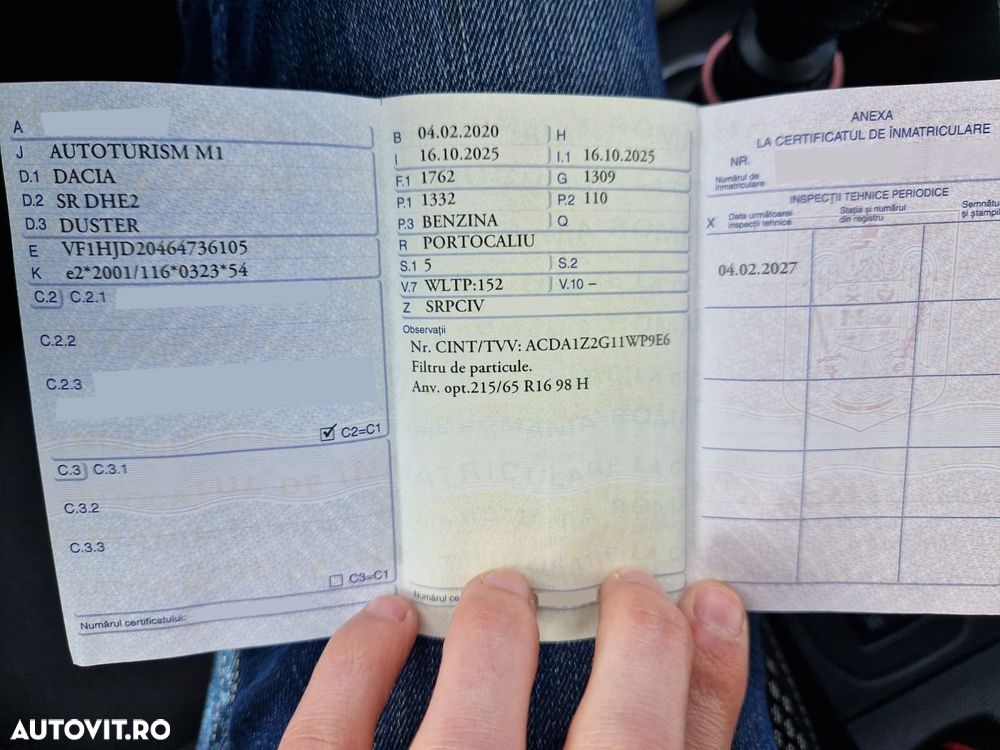 A
J AUTOTURISM M1
D.1 DACIA
D.2 SR DHE2
D.3 DUSTER
E VF1HJD20464736105
K e2*2001/116*0323*54
C.2 C.2.1
C.2.2
C.2.3
C2=C1
C.3 C.3.1
C.3.2
C.3.3
C3=C1
Numărul certificatului:
B 04.02.2020 H
I 16.10.2025 I.1 16.10.2025
F.1 1762 G 1309
P.1 1332 P.2 110
P.3 BENZINA Q
R PORTOCALIU
S.1 5 S.2
V.7 WLTP:152 V.10 –
Z SRPCIV
Observații
Nr. CINT/TVV: ACDA1Z2G11WP9E6
Filtru de particule.
Anv. opt.215/65 R16 98 H
Numărul ce
ANEXA
LA CERTIFICATUL DE ÎNMATRICULARE
NR.
Numărul de
înmatriculare
INSPECȚII TEHNICE PERIODICE
X Data următoarei
inspecții tehnice
Stația și numărul
din registru
Semnătu
și ștampil
04.02.2027
AUTOVIT.RO